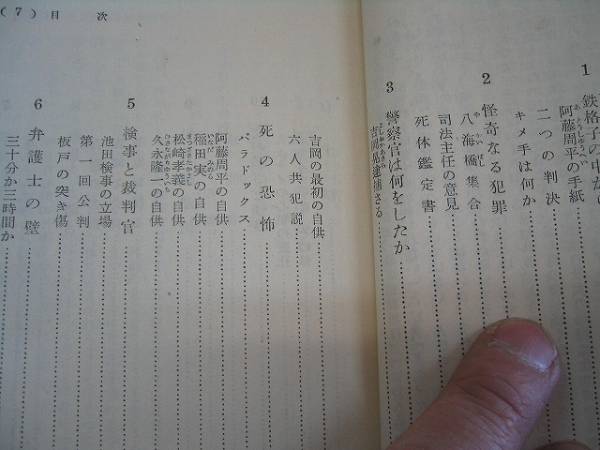 1 鉄格子の中から
阿藤周平の手紙
二つの判決
キメ手は何か
2 怪奇なる犯罪
八海橋集合
司法主任の意見
死体鑑定書
3 警察官は何をしたか
吉岡晃逮捕さる
(7) 目次
吉岡の最初の自供
六人共犯説
4 死の恐怖
パラドックス
阿藤周平の自供
稲田実の自供
松崎孝義の自供
久永隆一の自供
5 検事と裁判官
池田検事の立場
第一回公判
板戸の突き傷
6 弁護士の壁
三十分か三時間か